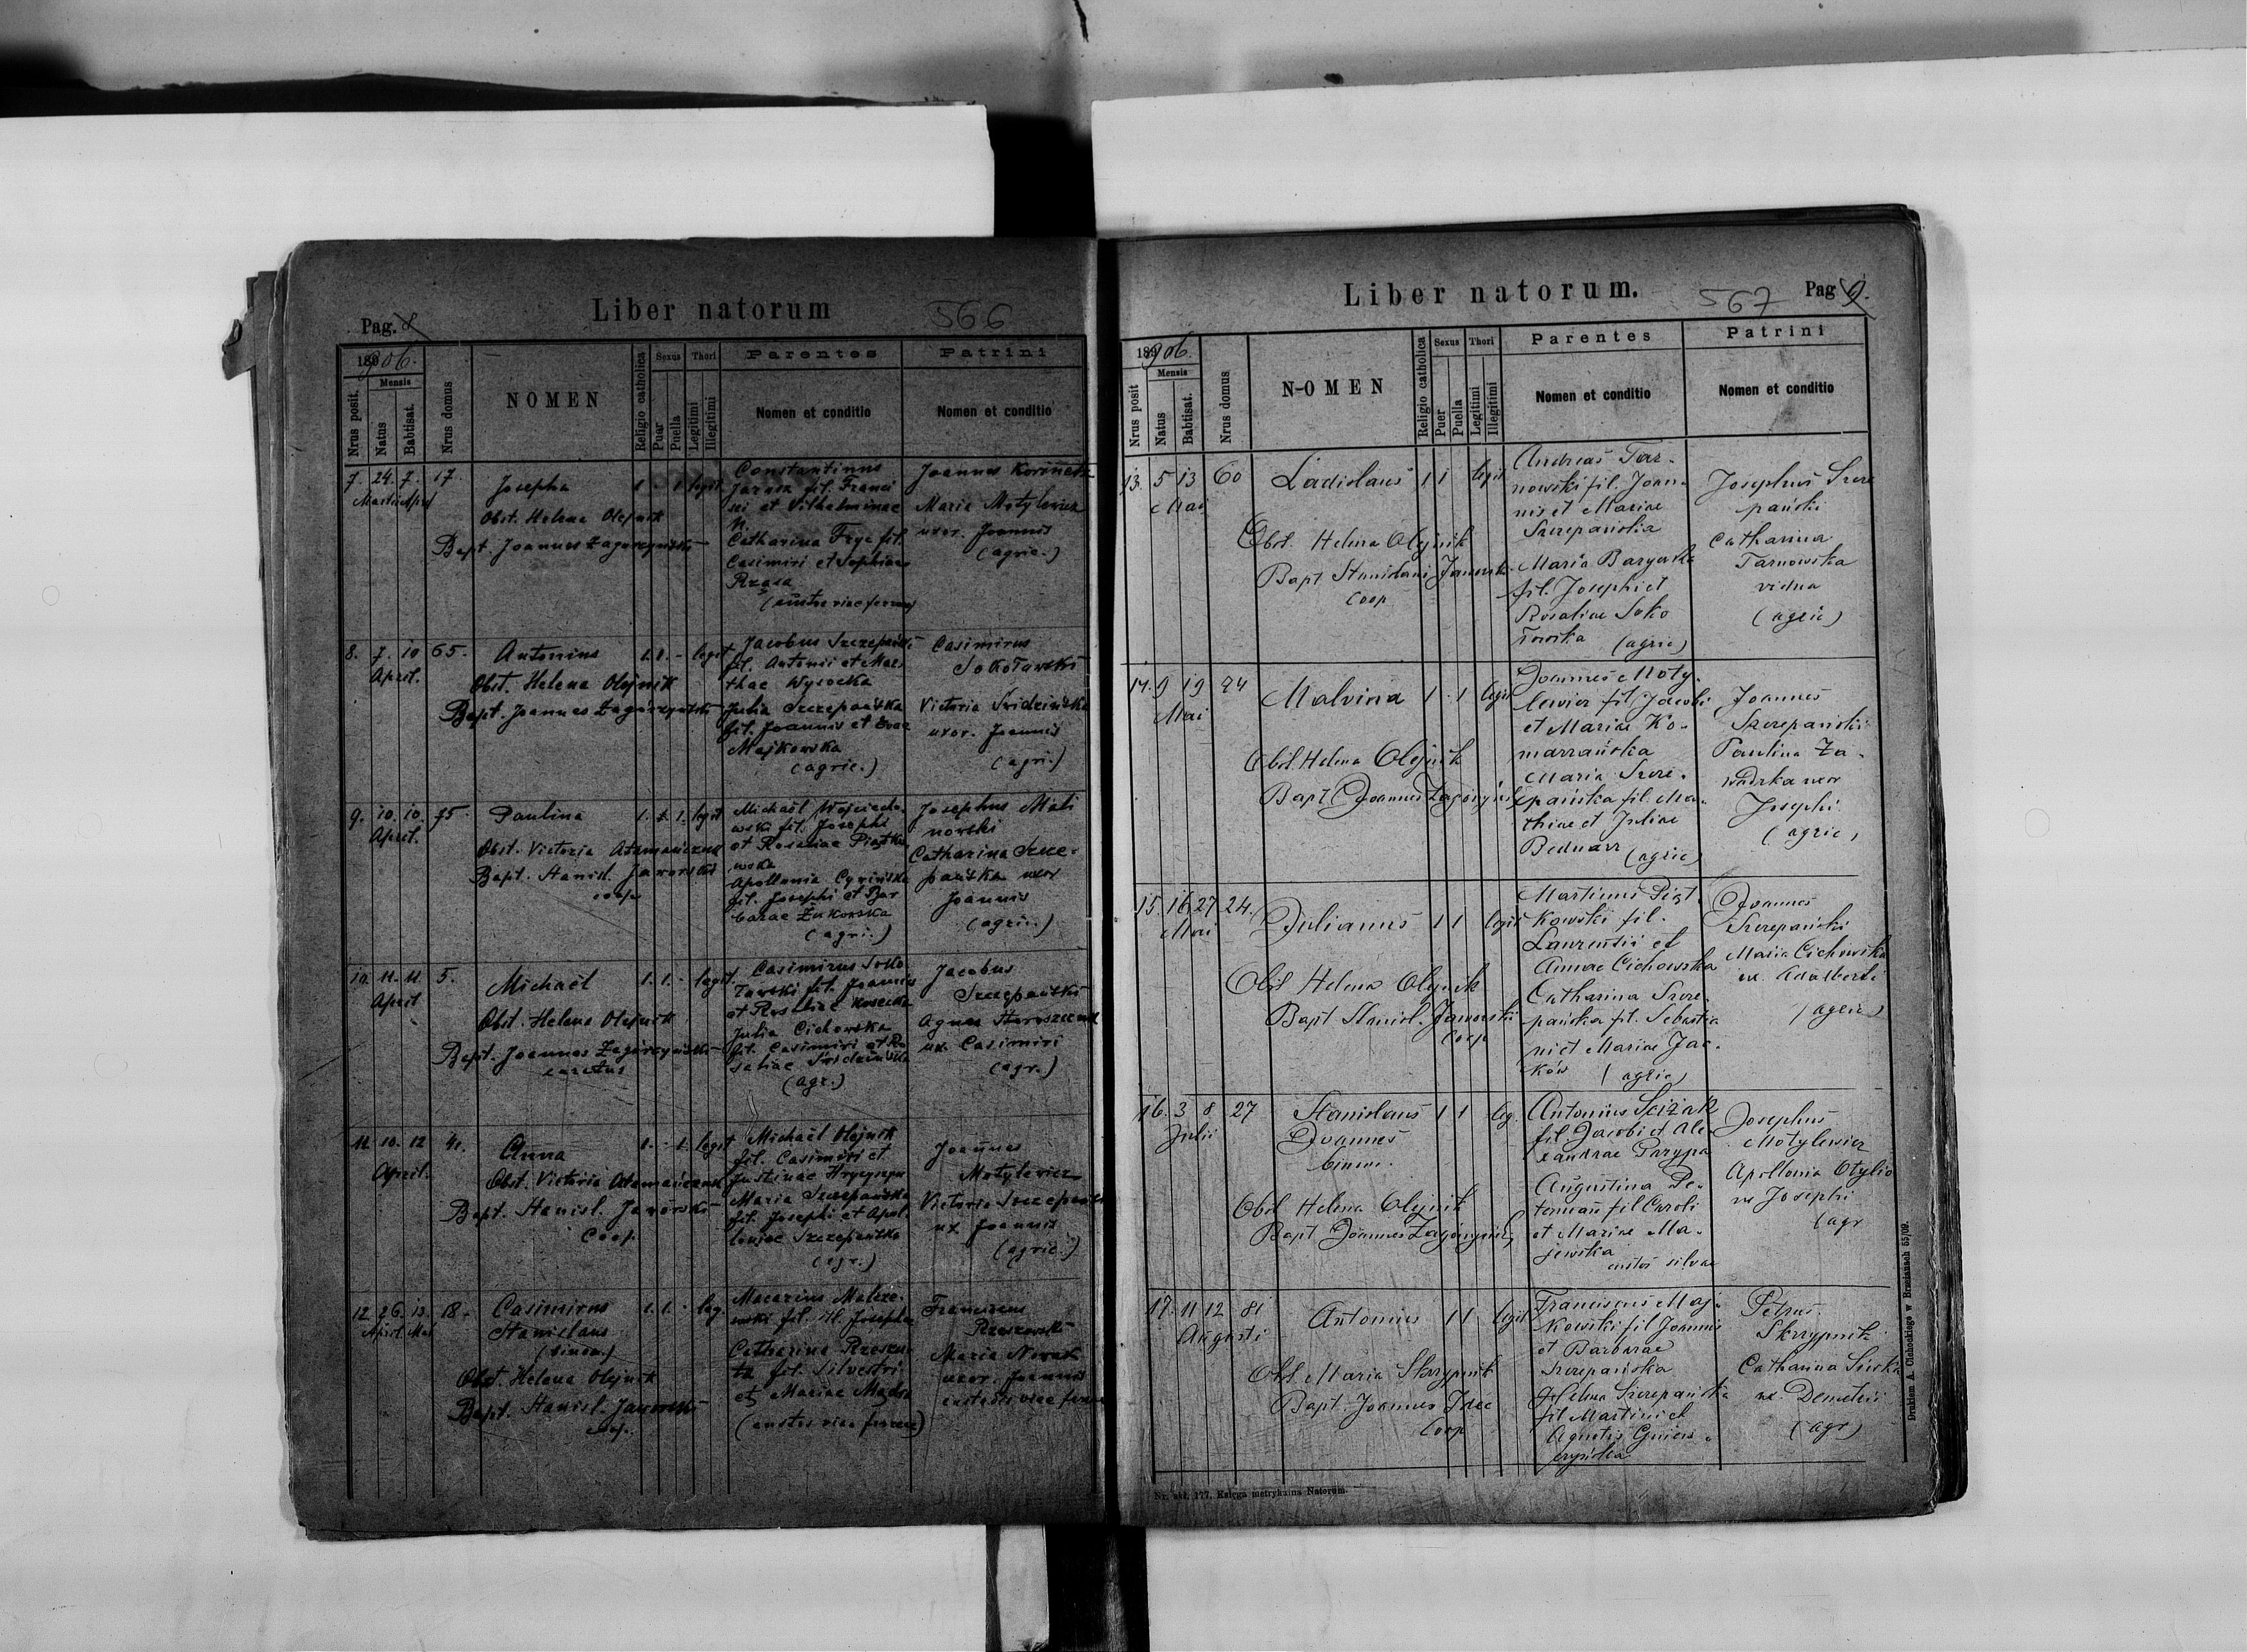 Pag. 8
Liber natorum
566
1906.
Mensis
Nrus posit.
Natus
Babtisat.
Nrus domus
NOMEN
Religio catholica
Sexus
Puer
Puella
Thori
Legitimi
Illegitimi
Parentes
Nomen et conditio
Patrini
Nomen et conditio
7. 24. 7. 17.
Martii April
Josepha
1 - 1 legit
Obst. Helena Olejnik
Bapt. Joannes Zagórzyński
Constantinus
fil. Franci
sci et Vilhelminae
N.
Catharina Fryc fil.
Casimiri et Sophiae
Rzasa
Joannes
Maria Motylewicz
uxor. Joannis
(agric.)
8. 7. 10 65.
April.
Antonius
1. 1. - legit
Obst. Helena Olejnik
Bapt. Joannes Zagórzyński
Jacobus Szczepański
fil. Antonii et Mar
thae Wysocka
Julia Szczepańska
fil. Joannis et Evae
Majkowska
(agric.)
Casimirus
Sokołowski
Victoria
uxor. Joannis
(agri.)
9. 10. 10. 75.
April.
Paulina
legit
Obst. Victoria Atamańczuk
Bapt. Stanisl. Jaworski
coop
Michaël Wojciecho
wski fil. Josephi
et Rosaliae Piątko
wska
Apollonia
fil. Josephi et Bar
barae Żukowska
(agri.)
Josephus Mali
nowski
Catharina Szcze
pańska uxor
Joannis
(agric.)
10. 11. 11. 5.
April
Michaël
1. 1. - legit.
Obst. Helena Olejnik
Bapt. Joannes Zagórzyński
Casimirus Soko
łowski fil. Joannis
et Rosaliae
Julia Cichowska
fil. Casimiri et Ro
saliae
(agr.)
Jacobus
Szczepański
Agnes
ux. Casimiri
(agr.)
11. 10. 12 41.
April.
Anna
1. - 1. legit
Obst. Victoria Atamańczuk
Bapt. Stanisl. Jaworski
Coop.
Michaël Olejnik
fil. Casimiri et
Justinae
Maria Szczepańska
fil. Josephi et Apol
loniae Szczepańska
(agr.)
Joannes
Motylewicz
Victoria Szczepańska
ux Joannis
(agric.)
12. 26. 13. 18.
April. Mai
Casimirus
Stanislaus
(binom.)
1. 1. - leg.
Obst. Helena Olejnik
Bapt. Stanisl. Jaworski
coop.
Macarius
fil. Josephi
Catharina
fil. Silvestri
et Mariae
(custos viae ferreae)
Franciscus
Maria Nowak
uxor. Joannis
custodis viae ferreae
Liber natorum.
567
Pag 9.
1906.
Mensis
Nrus posit
Natus
Babtisat.
Nrus domus
NOMEN
Religio catholica
Sexus
Puer
Puella
Thori
Legitimi
Illegitimi
Parentes
Nomen et conditio
Patrini
Nomen et conditio
13. 5 13 60
Mai
Ladislaus
1 1 legit
Obst. Helena Olejnik
Bapt Stanislaus Jaworski
Coop
Andreas Tar-
nowski fil. Joan-
nis et Mariae
Szczepańska
Maria
fil. Josephi et
Rosaliae Soko
łowska (agric)
Josephus Szcze
pański
Catharina
Tarnowska
vidua
(agric)
14. 9 19 94
Mai
Malvina
1 - 1 legit
Obst. Helena Olejnik
Bapt. Joannes Zagórzyński
Joannes Moty-
lewicz fil Jacobi
et Mariae Ko-
marzańska
Maria Szcze-
pańska fil. Ma-
thiae et Juliae
Bednarz (agric)
Joannes
Szczepański
Paulina Za-
wadzka uxor
Josephi
(agric)
15. 16 27 24.
Mai
Julianus
1 1 legit
Obst Helena Olejnik
Bapt Stanisl. Jaworski
Coop
Martinus Piąt-
kowski fil.
Laurentii et
Annae Cichowska
Catharina Szcze-
pańska fil. Sebastia
ni et Mariae Jac-
ków (agric)
Joannes
Szczepański
Maria Cichowska
ux. Adalberti
(agric)
16. 3 8 27
Julii
Stanislaus
Joannes
binom.
1 1 leg.
Obst Helena Olejnik
Bapt Joannes Zagórzyński
Antonius Ściżak
fil Jacobi et Ale-
xandrae
Augustina
fil Caroli
et Mariae Ma-
jewska
custos silvae
Josephus
Motylewicz
Apollonia
ux Josephi
(agr
17. 11 12 81
Augusti
Antonius
1 1 legit
Obst. Maria Skrzypnik
Bapt. Joannes
Coop
Franciscus Maj-
kowski fil Joannis
et Barbarae
Szczepańska
Helena Szczepańska
fil Martini et
Agnetis
Petrus
Skrzypnik
Catharina
ux. Demetrii
(agr)
Nr. skł. 177. Księga metrykalna Natorum.
Drukiem A. Cichockiego w Brzeżanach 55/09.